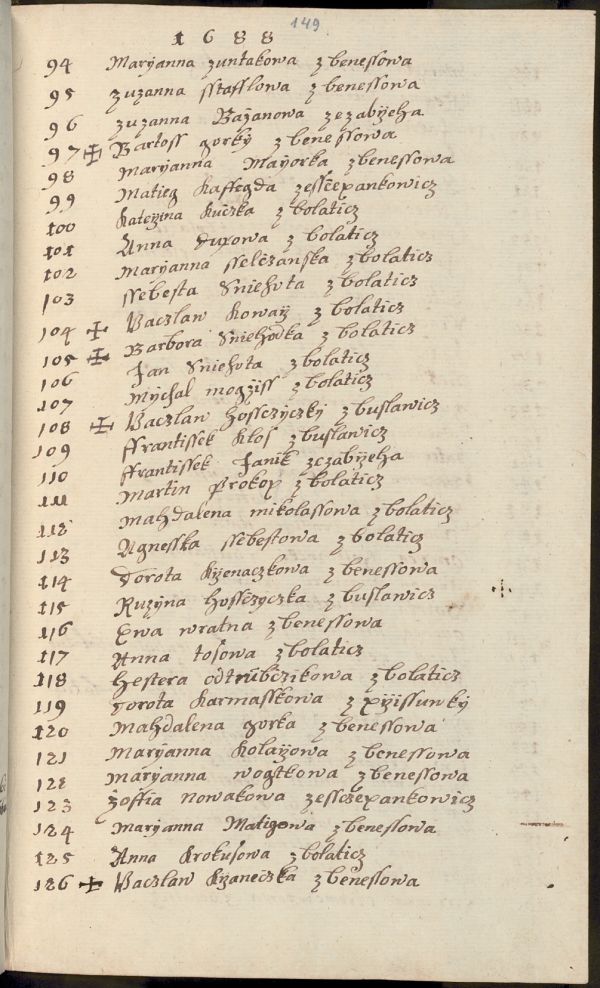 149
1688
94 Maryanna zuntakowa z benessowa
95 zuzanna sstafflowa z benessowa
96 zuzanna Bazanowa ze zabyeha
97 ✠ Bartoss gorky z benessowa
98 Maryanna Mayorka z benessowa
99 Matieg Kaffegda ze sscepankowicz
100 Katezyna Kuczka z bolaticz
101 Anna Duxowa z bolaticz
102 Maryanna sselczanska z bolaticz
103 ssebesta Sniehota z bolaticz
104 ✠ Vaczlaw Kowarz z bolaticz
105 ✠ Barbora Sniehotka z bolaticz
106 Jan Sniehota z bolaticz
107 Mychal mogziss z bolaticz
108 ✠ Vaczlaw hossczyczky z buslawicz
109 ffrantissek Klos z buslawicz
110 ffrantissek Janik ze zabyeha
111 Martin Prokop z bolaticz
112 Mahdalena mikolassowa z bolaticz
113 Agnesska ssebestowa z bolaticz
114 Dorota Kzenaczkowa z benessowa
115 Ruzyna hossczyczka z buslawicz
116 Ewa wratna z benessowa
117 Anna tosowa z bolaticz
118 hestera odtrubczikowa z bolaticz
119 Dorota Karmasskowa z pzissunky
120 Mahdalena gorka z benessowa
121 Maryanna Kolazowa z benessowa
122 Maryanna wogtkowa z benessowa
123 zoffia Nowakowa ze ssczepankowicz
124 Maryanna Matigowa z benessowa
125 Anna Krokusowa z bolaticz
126 ✠ Vaczlaw Kzaneczka z benessowa